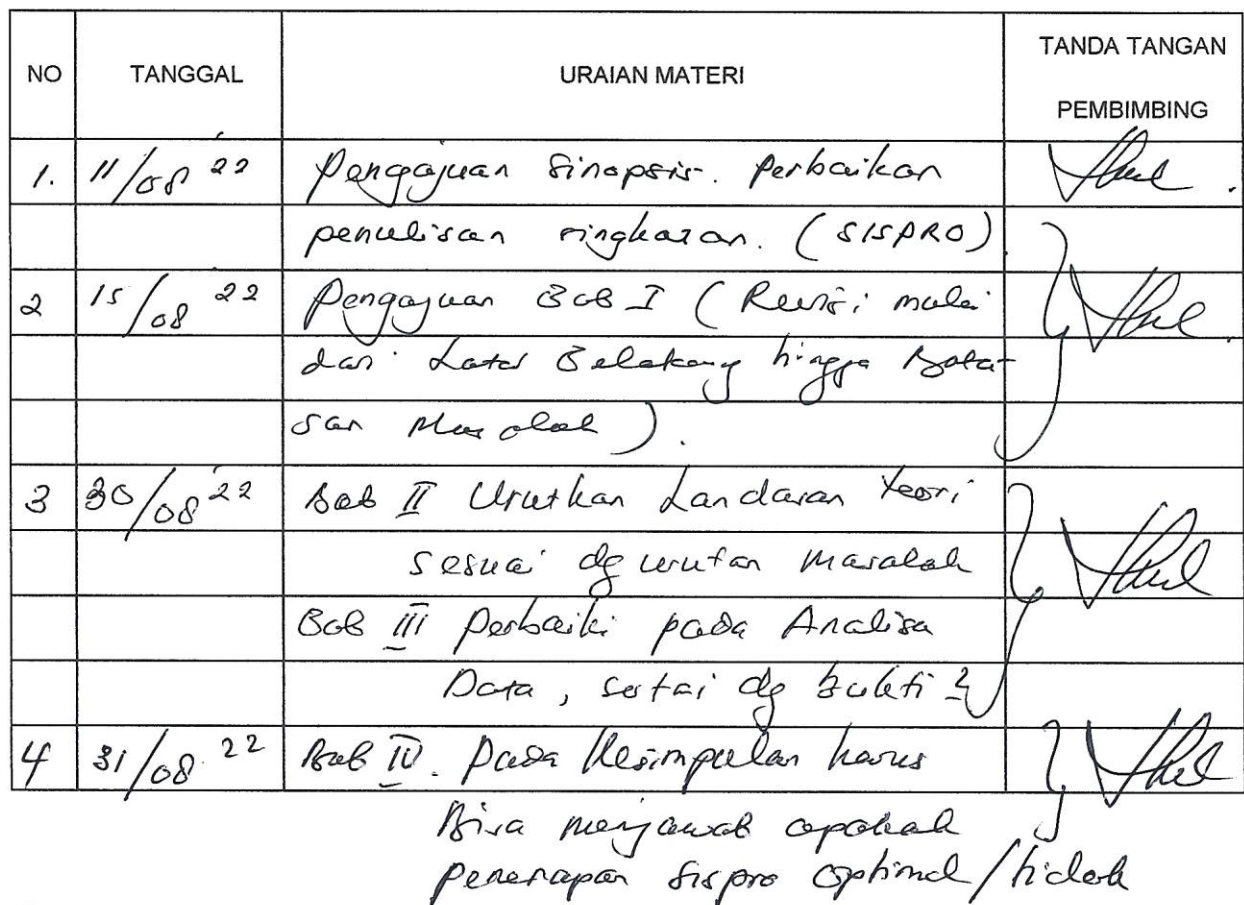 NO TANGGAL URAIAN MATERI TANDA TANGAN PEMBIMBING
1. 11/08 22 Pengajuan Sinopsis. Perbaikan
penulisan ringkasan. (SISPRO)
2 15/08 22 Pengajuan Bab I (Revisi mulai
dari Latar Belakang hingga Bata-
san Masalah).
3 30/08 22 Bab II Urutkan Landasan teori
sesuai dg urutan masalah
Bab III Perbaiki pada Analisa
Data, sertai dg bukti 2
4 31/08 22 Bab IV. Pada Kesimpulan harus
Bisa menjawab apakah
penerapan sispro optimal/tidak